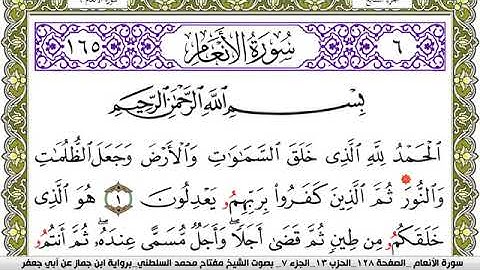 ٦ سُورَةُ الأَنْعَامِ ١٦٥
بِسْمِ اللَّهِ الرَّحْمَٰنِ الرَّحِيمِ
ٱلْحَمْدُ لِلَّهِ ٱلَّذِى خَلَقَ ٱلسَّمَٰوَٰتِ وَٱلْأَرْضَ وَجَعَلَ ٱلظُّلُمَٰتِ
وَٱلنُّورَ ثُمَّ ٱلَّذِينَ كَفَرُوا۟ بِرَبِّهِمُۥ يَعْدِلُونَ ١ هُوَ ٱلَّذِى
خَلَقَكُمُۥ مِن طِينٍ ثُمَّ قَضَىٰٓ أَجَلًا وَأَجَلٌ مُّسَمًّى عِندَهُۥ ثُمَّ أَنتُمُۥ
سورة الإنعام _الصفحة ١٢٨_ الحزب ١٣_ الجزء ٧_ بصوت الشيخ مفتاح محمد السلطني_ برواية ابن جماز عن أبي جعفر